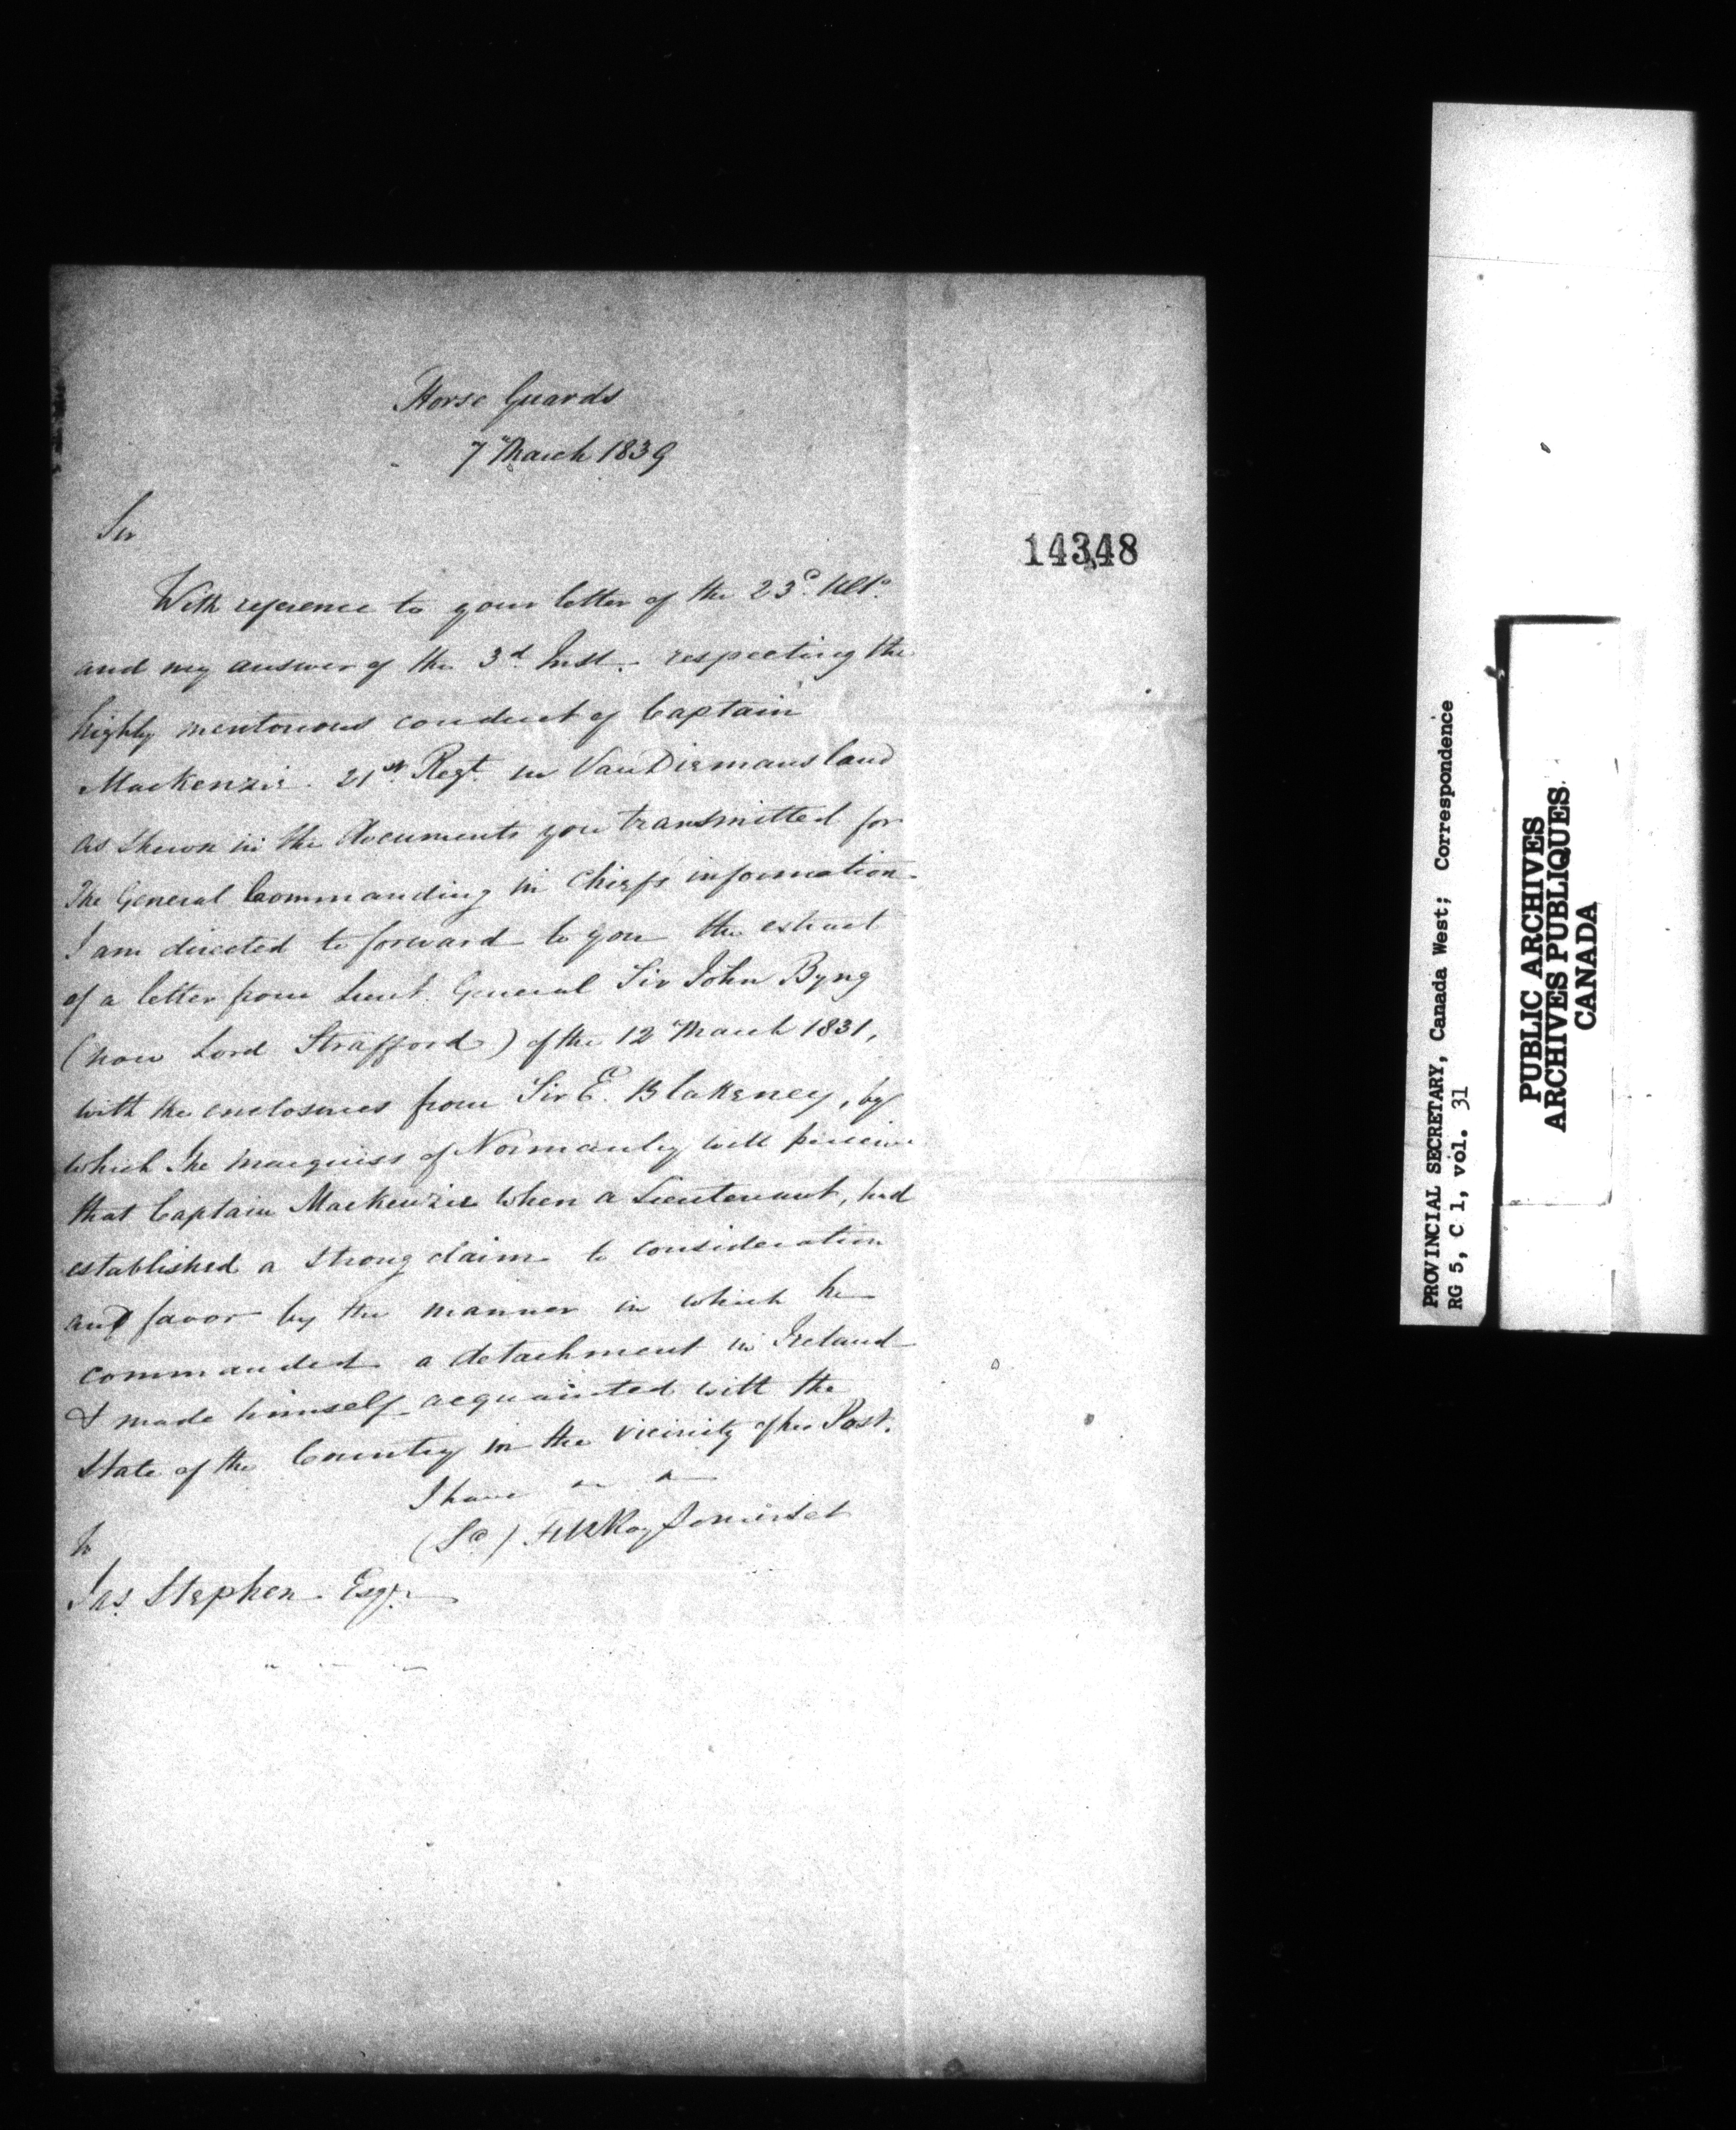 Horse Guards
7 March 1839
Sir
14348
With reference to your letter of the 23d. Ulto.
and my answer of the 3d. Inst. respecting the
highly meritorious conduct of Captain
Mackenzie. 21st Regt. in Van Diemans land
as shewn in the documents you transmitted for
The General Commanding in Chiefs information.
I am directed to forward to you the extract
of a letter from Lieut. General Sir John Byng
(now Lord Strafford) of the 12 March 1831,
with the enclosures from Sir E. Blakeney, by
which The Marquiss of Normanby will perceive
that Captain Mackenzie when a Lieutenant, had
established a strong claim to consideration
and favor by the manner in which he
commanded a detachment in Ireland
& made himself acquainted with the
State of the Country in the vicinity of his Post.
I have
(Sd) FitzRoy Somerset
To
Jas. Stephen Esqr.
PROVINCIAL SECRETARY, Canada West; Correspondence
RG 5, C 1, vol. 31
PUBLIC ARCHIVES
ARCHIVES PUBLIQUES
CANADA